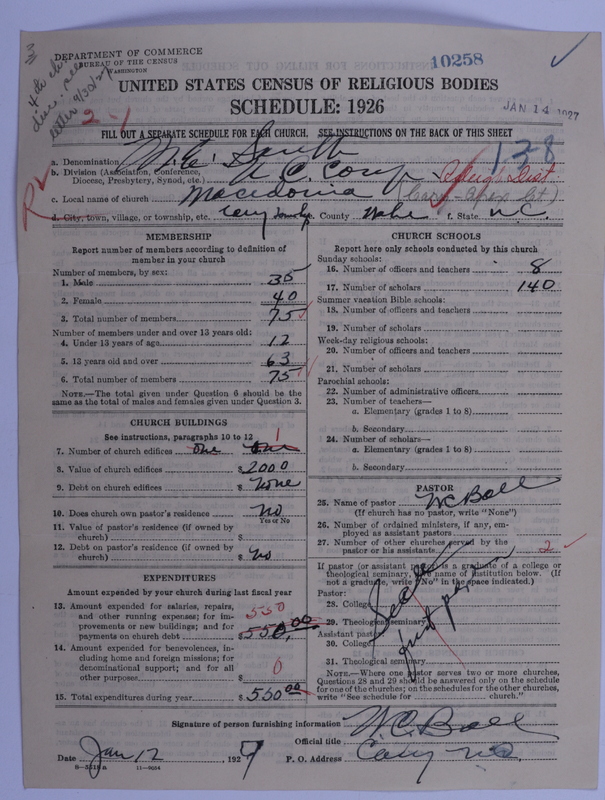 DEPARTMENT OF COMMERCE
BUREAU OF THE CENSUS
WASHINGTON
10258
UNITED STATES CENSUS OF RELIGIOUS BODIES
SCHEDULE: 1926
JAN 14 1927
2-1
FILL OUT A SEPARATE SCHEDULE FOR EACH CHURCH. SEE INSTRUCTIONS ON THE BACK OF THIS SHEET
128
a. Denomination M. E. South
b. Division (Association, Conference, Diocese, Presbytery, Synod, etc.) N C Conf Raleigh Dist
c. Local name of church Macedonia (Cary-Apex Ct)
d. City, town, village, or township, etc. Cary Township e. County Wake f. State N.C.
MEMBERSHIP
Report number of members according to definition of
member in your church
Number of members, by sex:
1. Male 35
2. Female 40
3. Total number of members 75
Number of members under and over 13 years old:
4. Under 13 years of age 12
5. 13 years old and over 63
6. Total number of members 75
NOTE.—The total given under Question 6 should be
same as the total of males and females given under Question 3.
CHURCH BUILDINGS
See instructions, paragraphs 10 to 12
7. Number of church edifices one one 1
8. Value of church edifices $2000
9. Debt on church edifices $None
10. Does church own pastor's residence No
Yes or No
11. Value of pastor's residence (if owned by
church) $
12. Debt on pastor's residence (if owned by
church) $No
EXPENDITURES
Amount expended by your church during last fiscal year
13. Amount expended for salaries, repairs, 550
and other running expenses; for im-
provements or new buildings; and for
payments on church debt $550.00
14. Amount expended for benevolences, in-
cluding home and foreign missions; for
denominational support; and for all
other purposes $ 0
15. Total expenditures during year $550.00
CHURCH SCHOOLS
Report here only schools conducted by this church
Sunday schools:
16. Number of officers and teachers 8
17. Number of scholars 140
Summer vacation Bible schools:
18. Number of officers and teachers
19. Number of scholars
Week-day religious schools:
20. Number of officers and teachers
21. Number of scholars
Parochial schools:
22. Number of administrative officers
23. Number of teachers—
a. Elementary (grades 1 to 8)
b. Secondary
24. Number of scholars—
a. Elementary (grades 1 to 8)
b. Secondary
PASTOR
25. Name of pastor W C Ball
(If church has no pastor, write "None")
26. Number of ordained ministers, if any, em-
ployed as assistant pastors
27. Number of other churches served by the
pastor or his assistants 2
If pastor (or assistant pastor) is a graduate of a college or
theological seminary, give name of institution below. (If
not a graduate, write "No" in the space indicated.)
Pastor:
28. College
29. Theological seminary
Assistant pastor:
30. College
31. Theological seminary
NOTE.—Where one pastor serves two or more churches,
Questions 28 and 29 should be answered only on the schedule
for one of the churches; on the schedules for the other churches,
write "See schedule for church."
Signature of person furnishing information W.C. Ball
Official title
Date Jan 12, 1927 P. O. Address Cary N.C.
8—3318a 11—9084